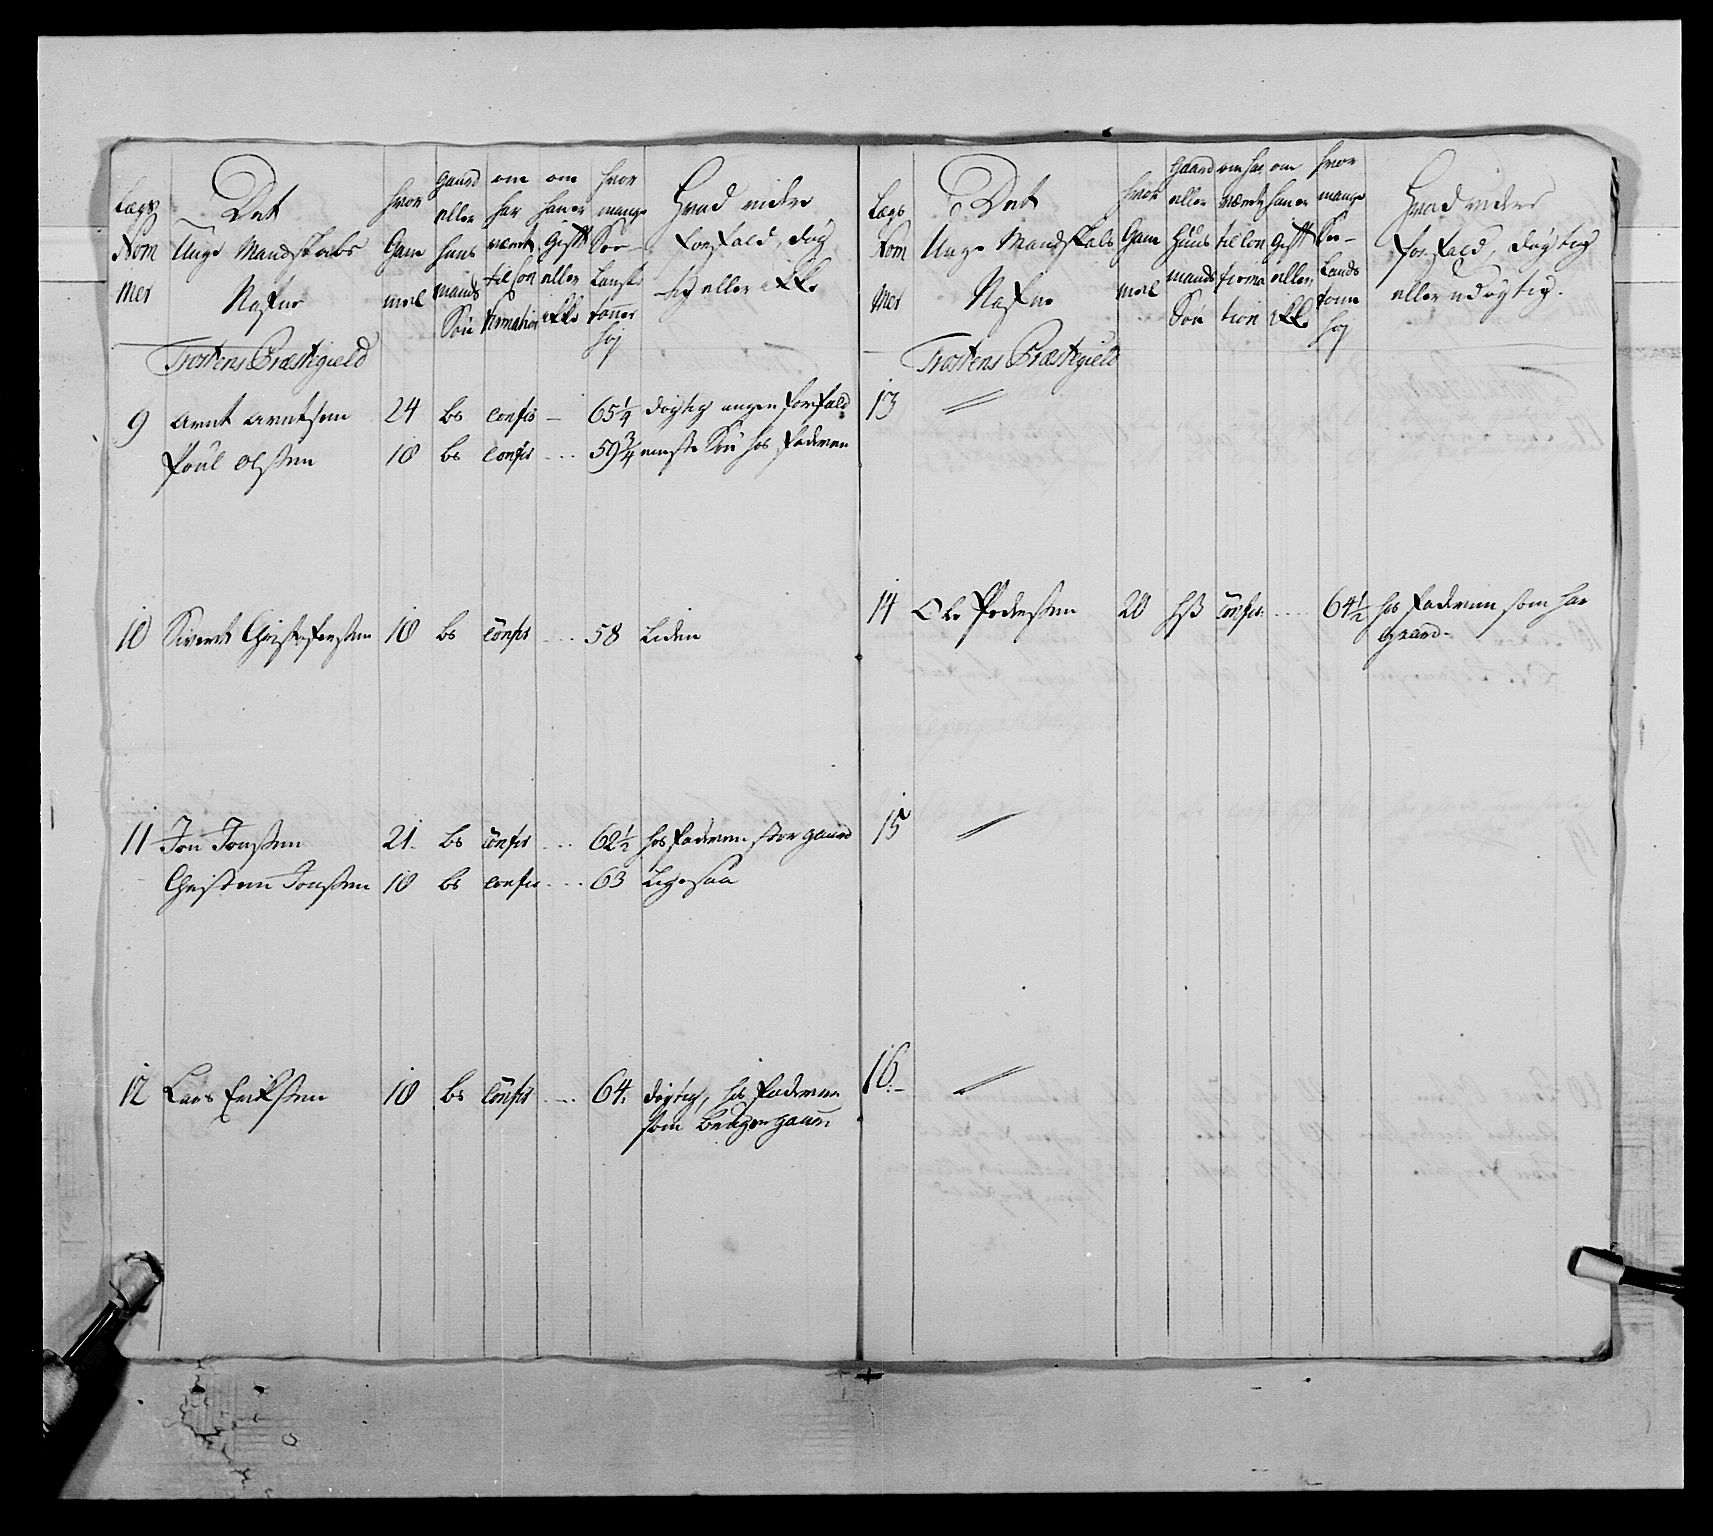 Lægs Nom mer
Det Unge Mandskabs Nafne
hvor Gam mel
gaard eller huus mands Søn
om har været til Con firmation
om han er Gift eller ikke
hvor mange See- Lanske tomer høj
Hvad videre forfald, døg tig eller ikke
Trostens Præstegield
9 Arnt Arntsen 24 bs confir — 65 1/4 døgtig ungen forfald
Poul Olssen 18 bs confir ... 59 3/4 eneste Søn hos faderen
10 Sivert Christofersen 18 bs confir ... 58 Liden
11 Jon Jonssen 21. bs confir ... 62 1/2 hos faderen stor gaard
Christen Jonssen 18 bs confir ... 63 Ligesaa
12 Lars Erikssen 18 bs confir ... 64. døgtig, hos faderen
som bruger gaard
Lægs Nom mer
Det Unge Mandskabs Nafne
hvor Gam mel
Gaard eller Huus mands Søn
om har været til Con firma tion
om han er Gift eller ikke
hvor mange See- Lands tomer høj
Hvad videre forfald, døgtig eller udøgtig.
Trostens Præstegield
13 〃
14 Ole Pedersen 20 hs confir. ... 64 1/2 hos faderen som har
gaard.
15 〃
16.- 〃